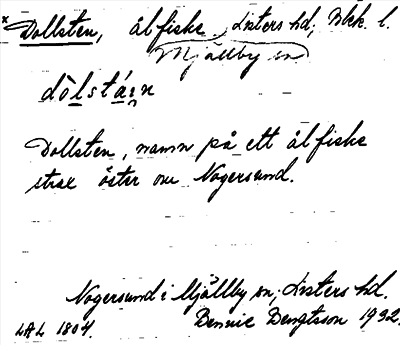 * Dollsten, ålfiske, Listers hd; Blek. l.
Mjällby sn
dōlstáɪn
Dollsten, namn på ett ålfiske
strax öster om Nogersund.
Nogersund i Mjällby sn; Listers hd.
LAL 1804. Bennie Bengtsson 1932.